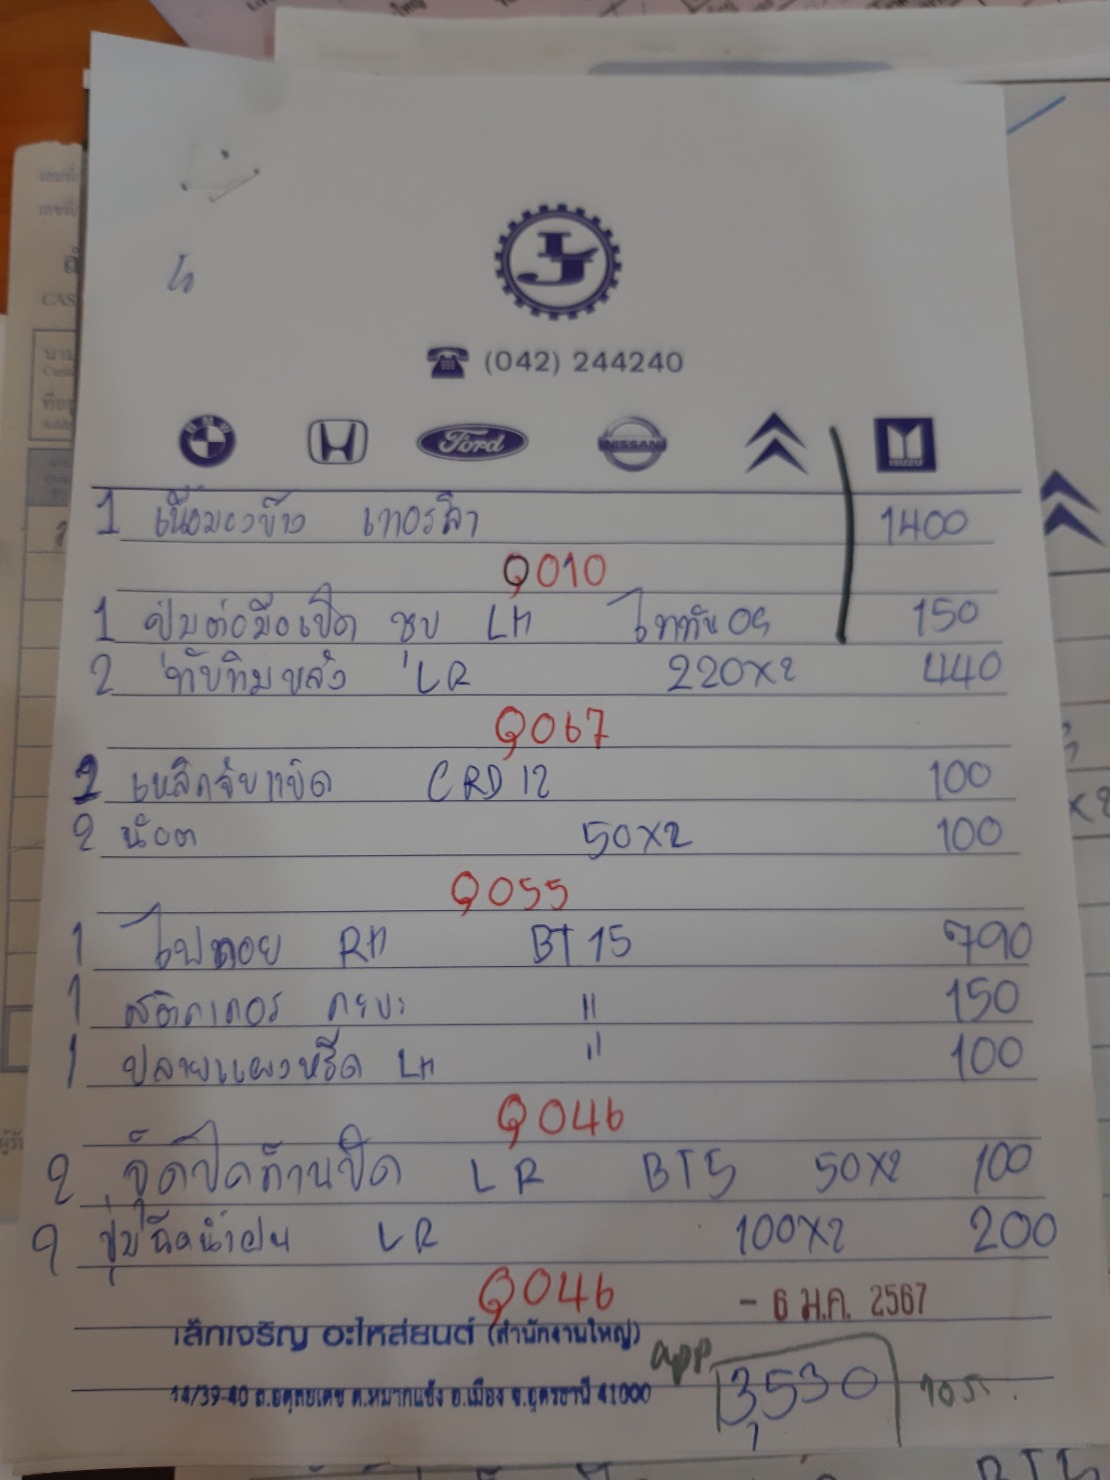 (042) 244240
BMW Ford NISSAN ISUZU
1 เนื้อมองข้าง เทอร์ล่า 1400
Q010
1 ปุ่มต่อมือเปิด ชุบ LH ไททัน 09 150
2 ทับทิมหลัง LR 220x2 440
Q067
2 เหล็กจับแบ็ต CRD 12 100
2 น๊อต 50x2 100
Q055
1 ไฟถอย RH BT 15 790
1 สติกเกอร์ กะบะ " 150
1 ปลายแผงหรีด LH " 100
Q046
2 จุ๊ดปิดก้านปัด LR BT5 50x2 100
2 ปุ่มฉีดน้ำฝน LR 100x2 200
Q046
- 6 ม.ค. 2567
เล้กเจริญ อะไหล่ยนต์ (สำนักงานใหญ่)
14/39-40 ถ.อดุลยเดช ต.หมากแข้ง อ.เมือง จ.อุดรธานี 41000
app 3,530